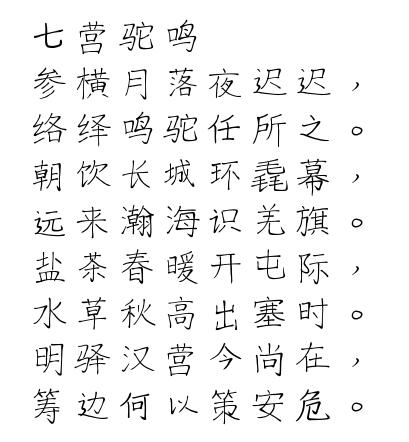 七营驼鸣
参横月落夜迟迟，
络绎鸣驼任所之。
朝饮长城环毳幕，
远来瀚海识羌旗。
盐茶春暖开屯际，
水草秋高出塞时。
明驿汉营今尚在，
筹边何以策安危。